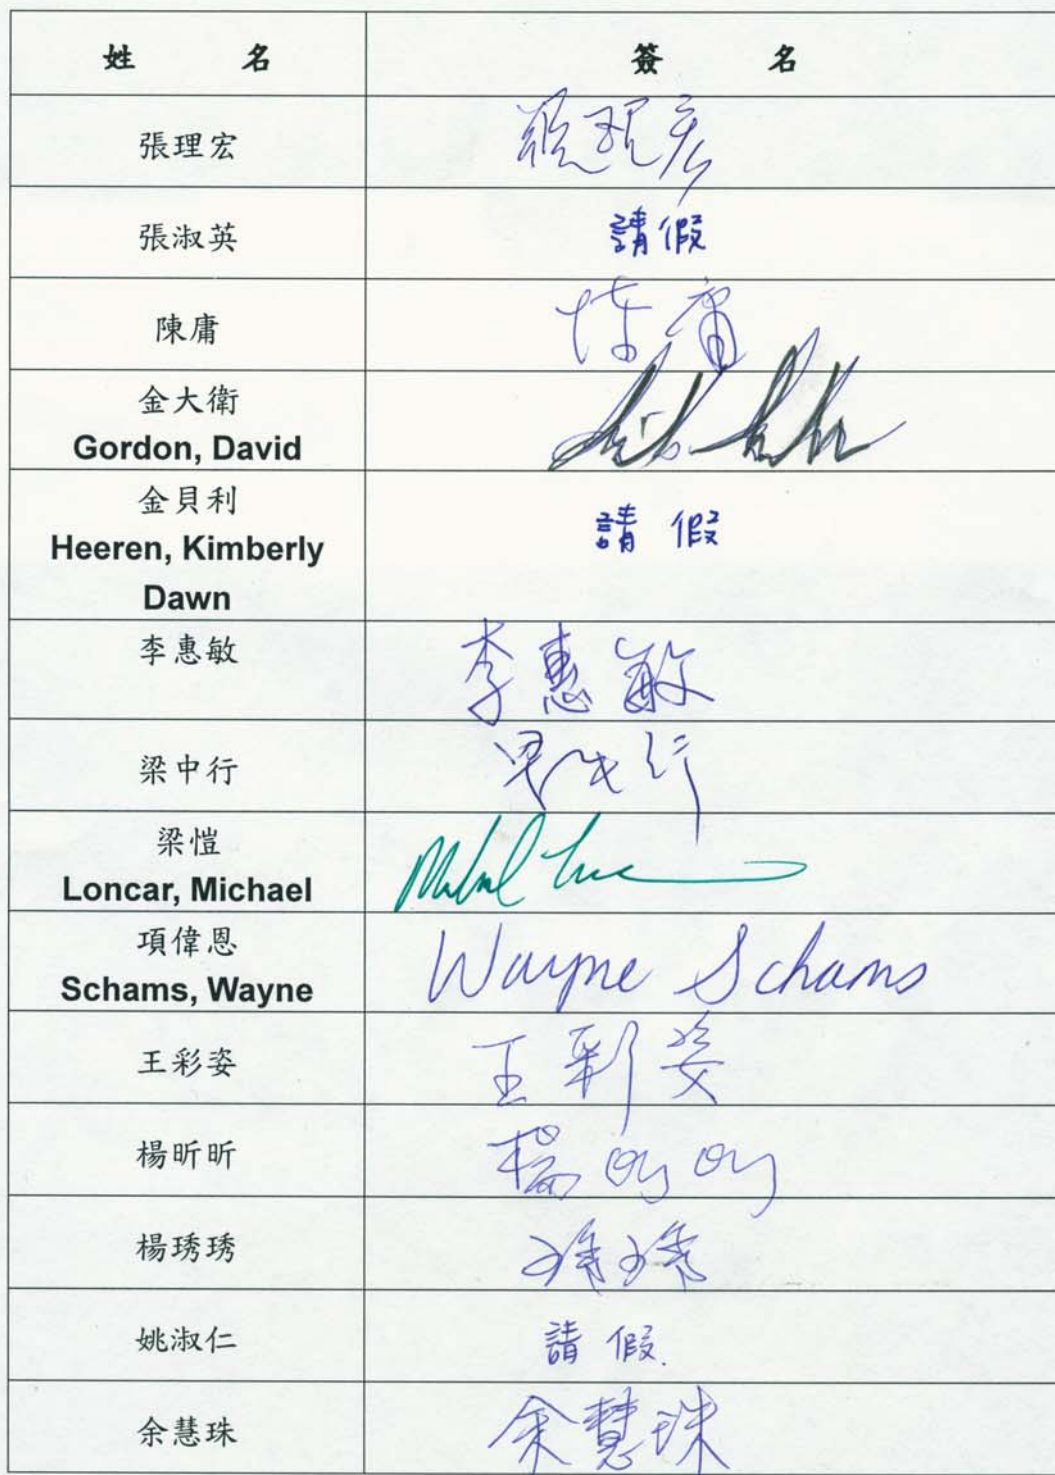 姓 名 簽 名
張理宏 張理宏
張淑英 請假
陳庸 陳庸
金大衛
Gordon, David
金貝利
Heeren, Kimberly 請假
Dawn
李惠敏 李惠敏
梁中行 梁中行
梁愷
Loncar, Michael
項偉恩
Schams, Wayne Wayne Schams
王彩姿 王彩姿
楊昕昕 楊昕昕
楊琇琇 琇琇
姚淑仁 請假.
余慧珠 余慧珠